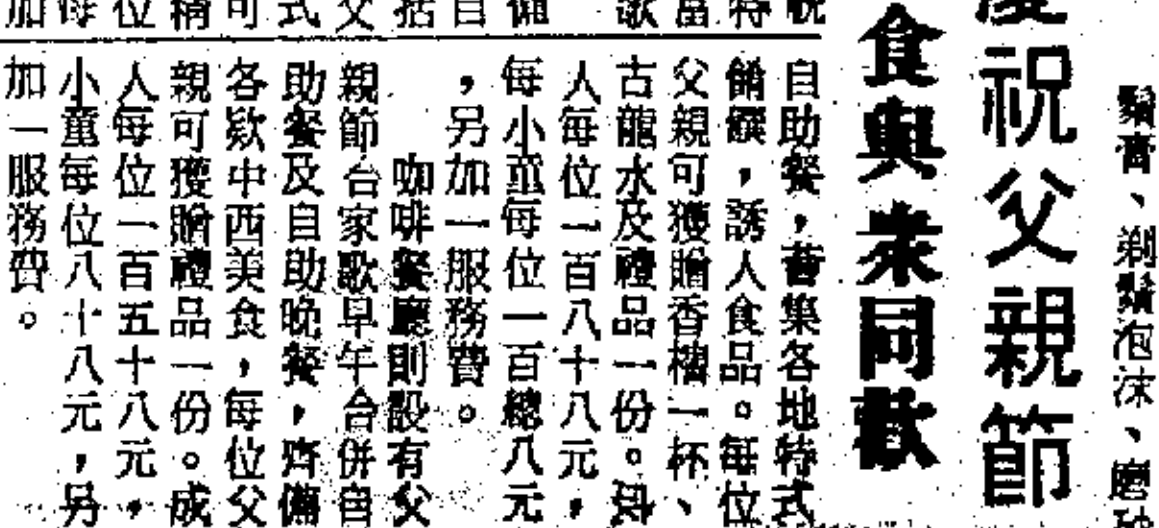 鬚膏、剃鬚泡沫、磨砂
慶祝父親節
食與衆同歡
自助餐，薈集各地特式
餚饌，誘人食品。每位
父親可獲贈香檳一杯、
古龍水及禮品一份。
人每位一百八十八元，
每小童每位一百 八元
，另加一服務費。
咖啡餐廳則設有父
親節台家歡早午合併自
助餐及自助晚餐，齊備
各款中西美食，每位父
親可獲贈禮品一份。成
人每位一百五十八元，
小童每位八十八元，另
加一服務費。